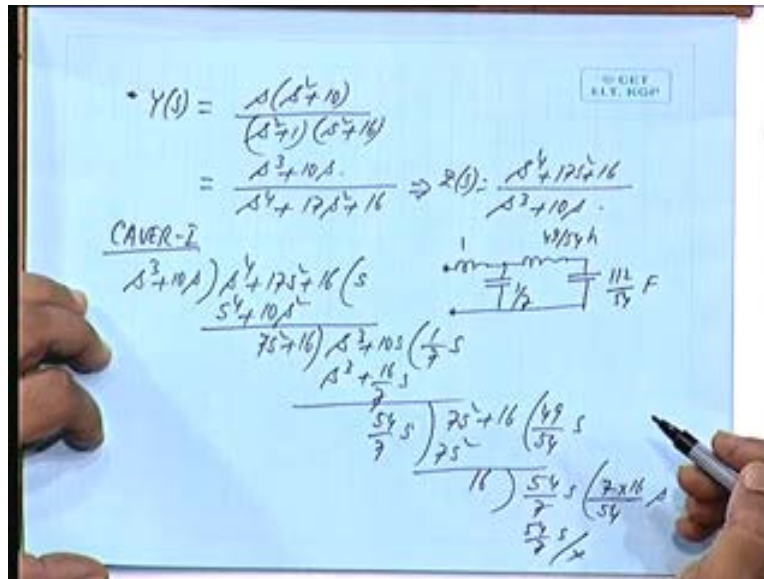 © CET
I.I.T. KGP
• Y(S) = s(s²+10) / (s²+1)(s²+16)
= s³+10s. / s⁴+17s²+16 ⇒ Z(S): s⁴+17s²+16 / s³+10s.
CAUER-I
1 49/54 h
1/7 112/54 F
s³+10s ) s⁴+17s²+16 ( s
s⁴+10s²
7s²+16 ) s³+10s ( 1/7 s
s³+16/7 s
54/7 s ) 7s²+16 ( 49/54 s
7s²
16 ) 54/7 s ( 7×16/54 s
54/7 s/x